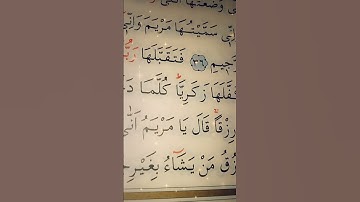 وَضَعْتُهَا أُنْثَى
سَمَّيْتُهَا مَرْيَمَ وَإِنِّي
الرَّجِيمِ ٣٦ فَتَقَبَّلَهَا رَبُّهَا
وَكَفَّلَهَا زَكَرِيَّا كُلَّمَا
رِزْقًا قَالَ يَا مَرْيَمُ أَنَّى
يَرْزُقُ مَنْ يَشَاءُ بِغَيْرِ